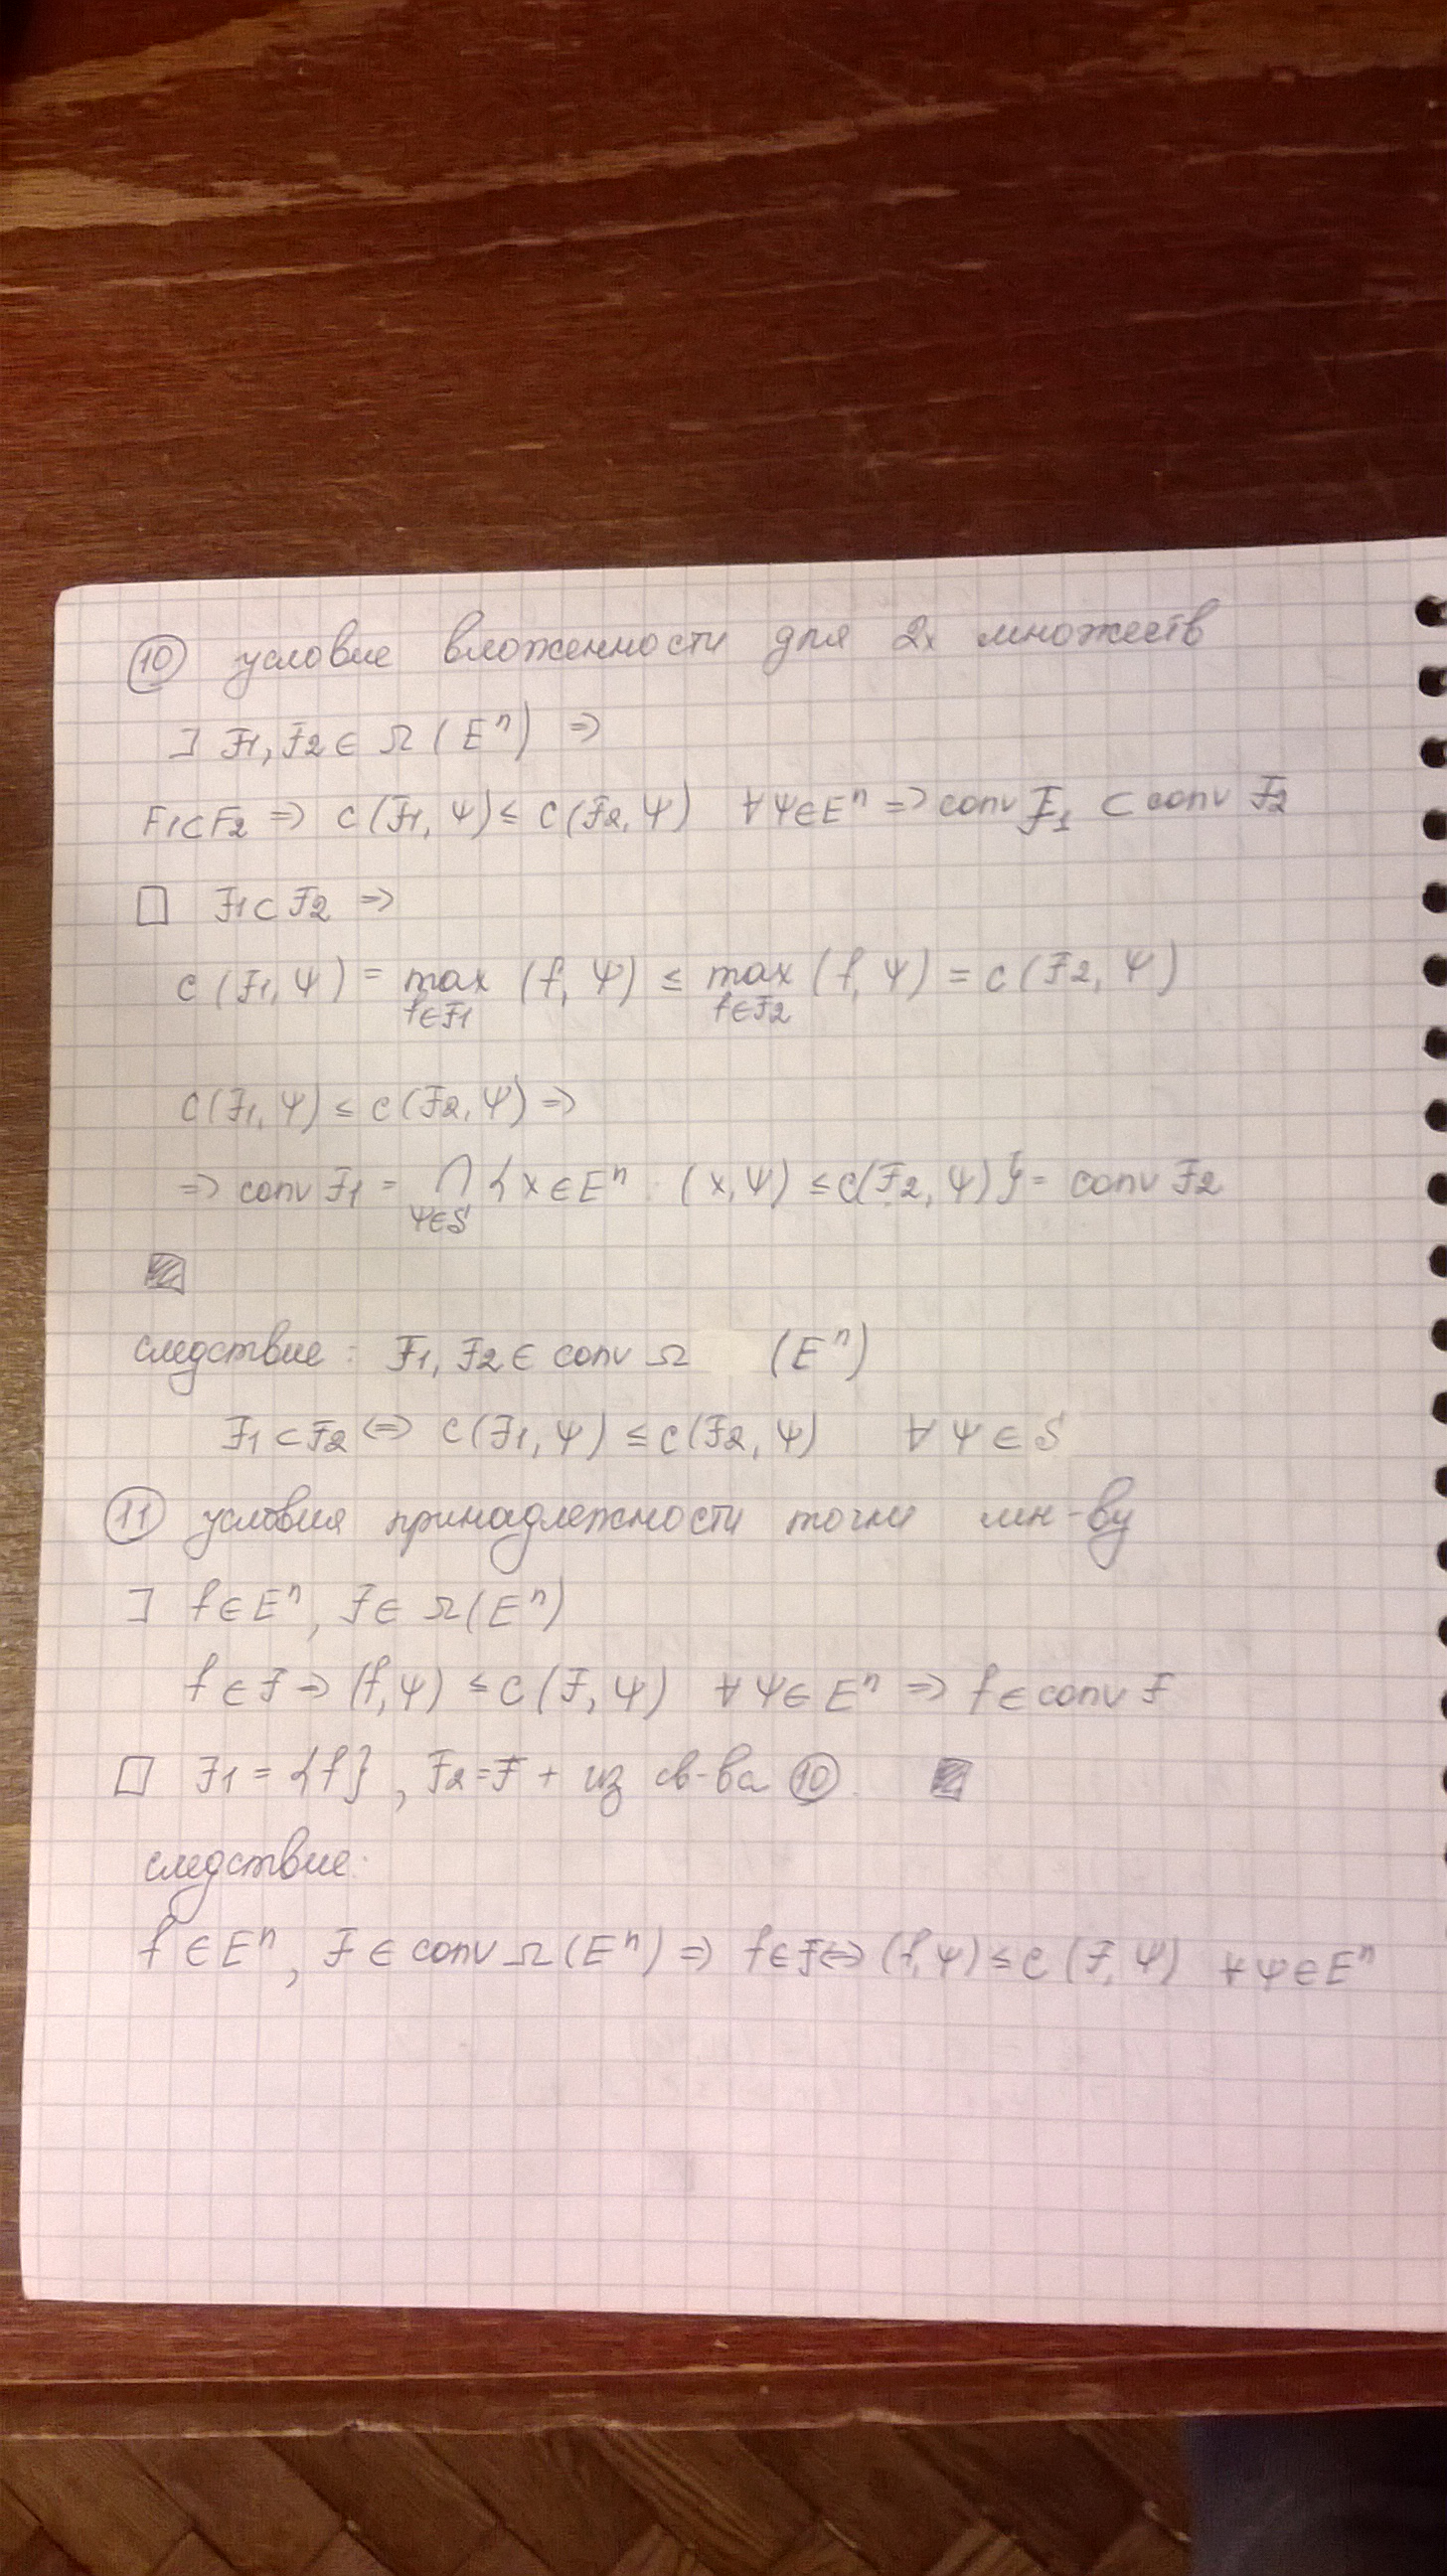 ⑩ условие вложенности для 2х множеств
∃ F1, F2 ∈ Ω (Eⁿ) ⇒
F1⊂F2 ⇒ c (F1, Ψ) ≤ c (F2, Ψ) ∀Ψ∈Eⁿ ⇒ conv F1 ⊂ conv F2
□ F1⊂F2 ⇒
c (F1, Ψ) = max (f, Ψ) ≤ max (f, Ψ) = c (F2, Ψ)
f∈F1 f∈F2
c (F1, Ψ) ≤ c (F2, Ψ) ⇒
⇒ conv F1 = ∩ {x ∈ Eⁿ : (x, Ψ) ≤ c(F2, Ψ)} = conv F2
Ψ∈S
следствие: F1, F2 ∈ conv Ω (Eⁿ)
F1 ⊂ F2 ⇔ c (F1, Ψ) ≤ c (F2, Ψ) ∀ Ψ ∈ S
⑪ условия принадлежности точки мн-ву
∃ f ∈ Eⁿ, F ∈ Ω (Eⁿ)
f ∈ F ⇒ (f, Ψ) ≤ c (F, Ψ) ∀ Ψ∈ Eⁿ ⇒ f ∈ conv F
□ F1 = {f}, F2 = F + из св-ва ⑩.
следствие:
f ∈ Eⁿ, F ∈ conv Ω (Eⁿ) ⇒ f∈F ⇔ (f, Ψ) ≤ c (F, Ψ) ∀ Ψ ∈ Eⁿ